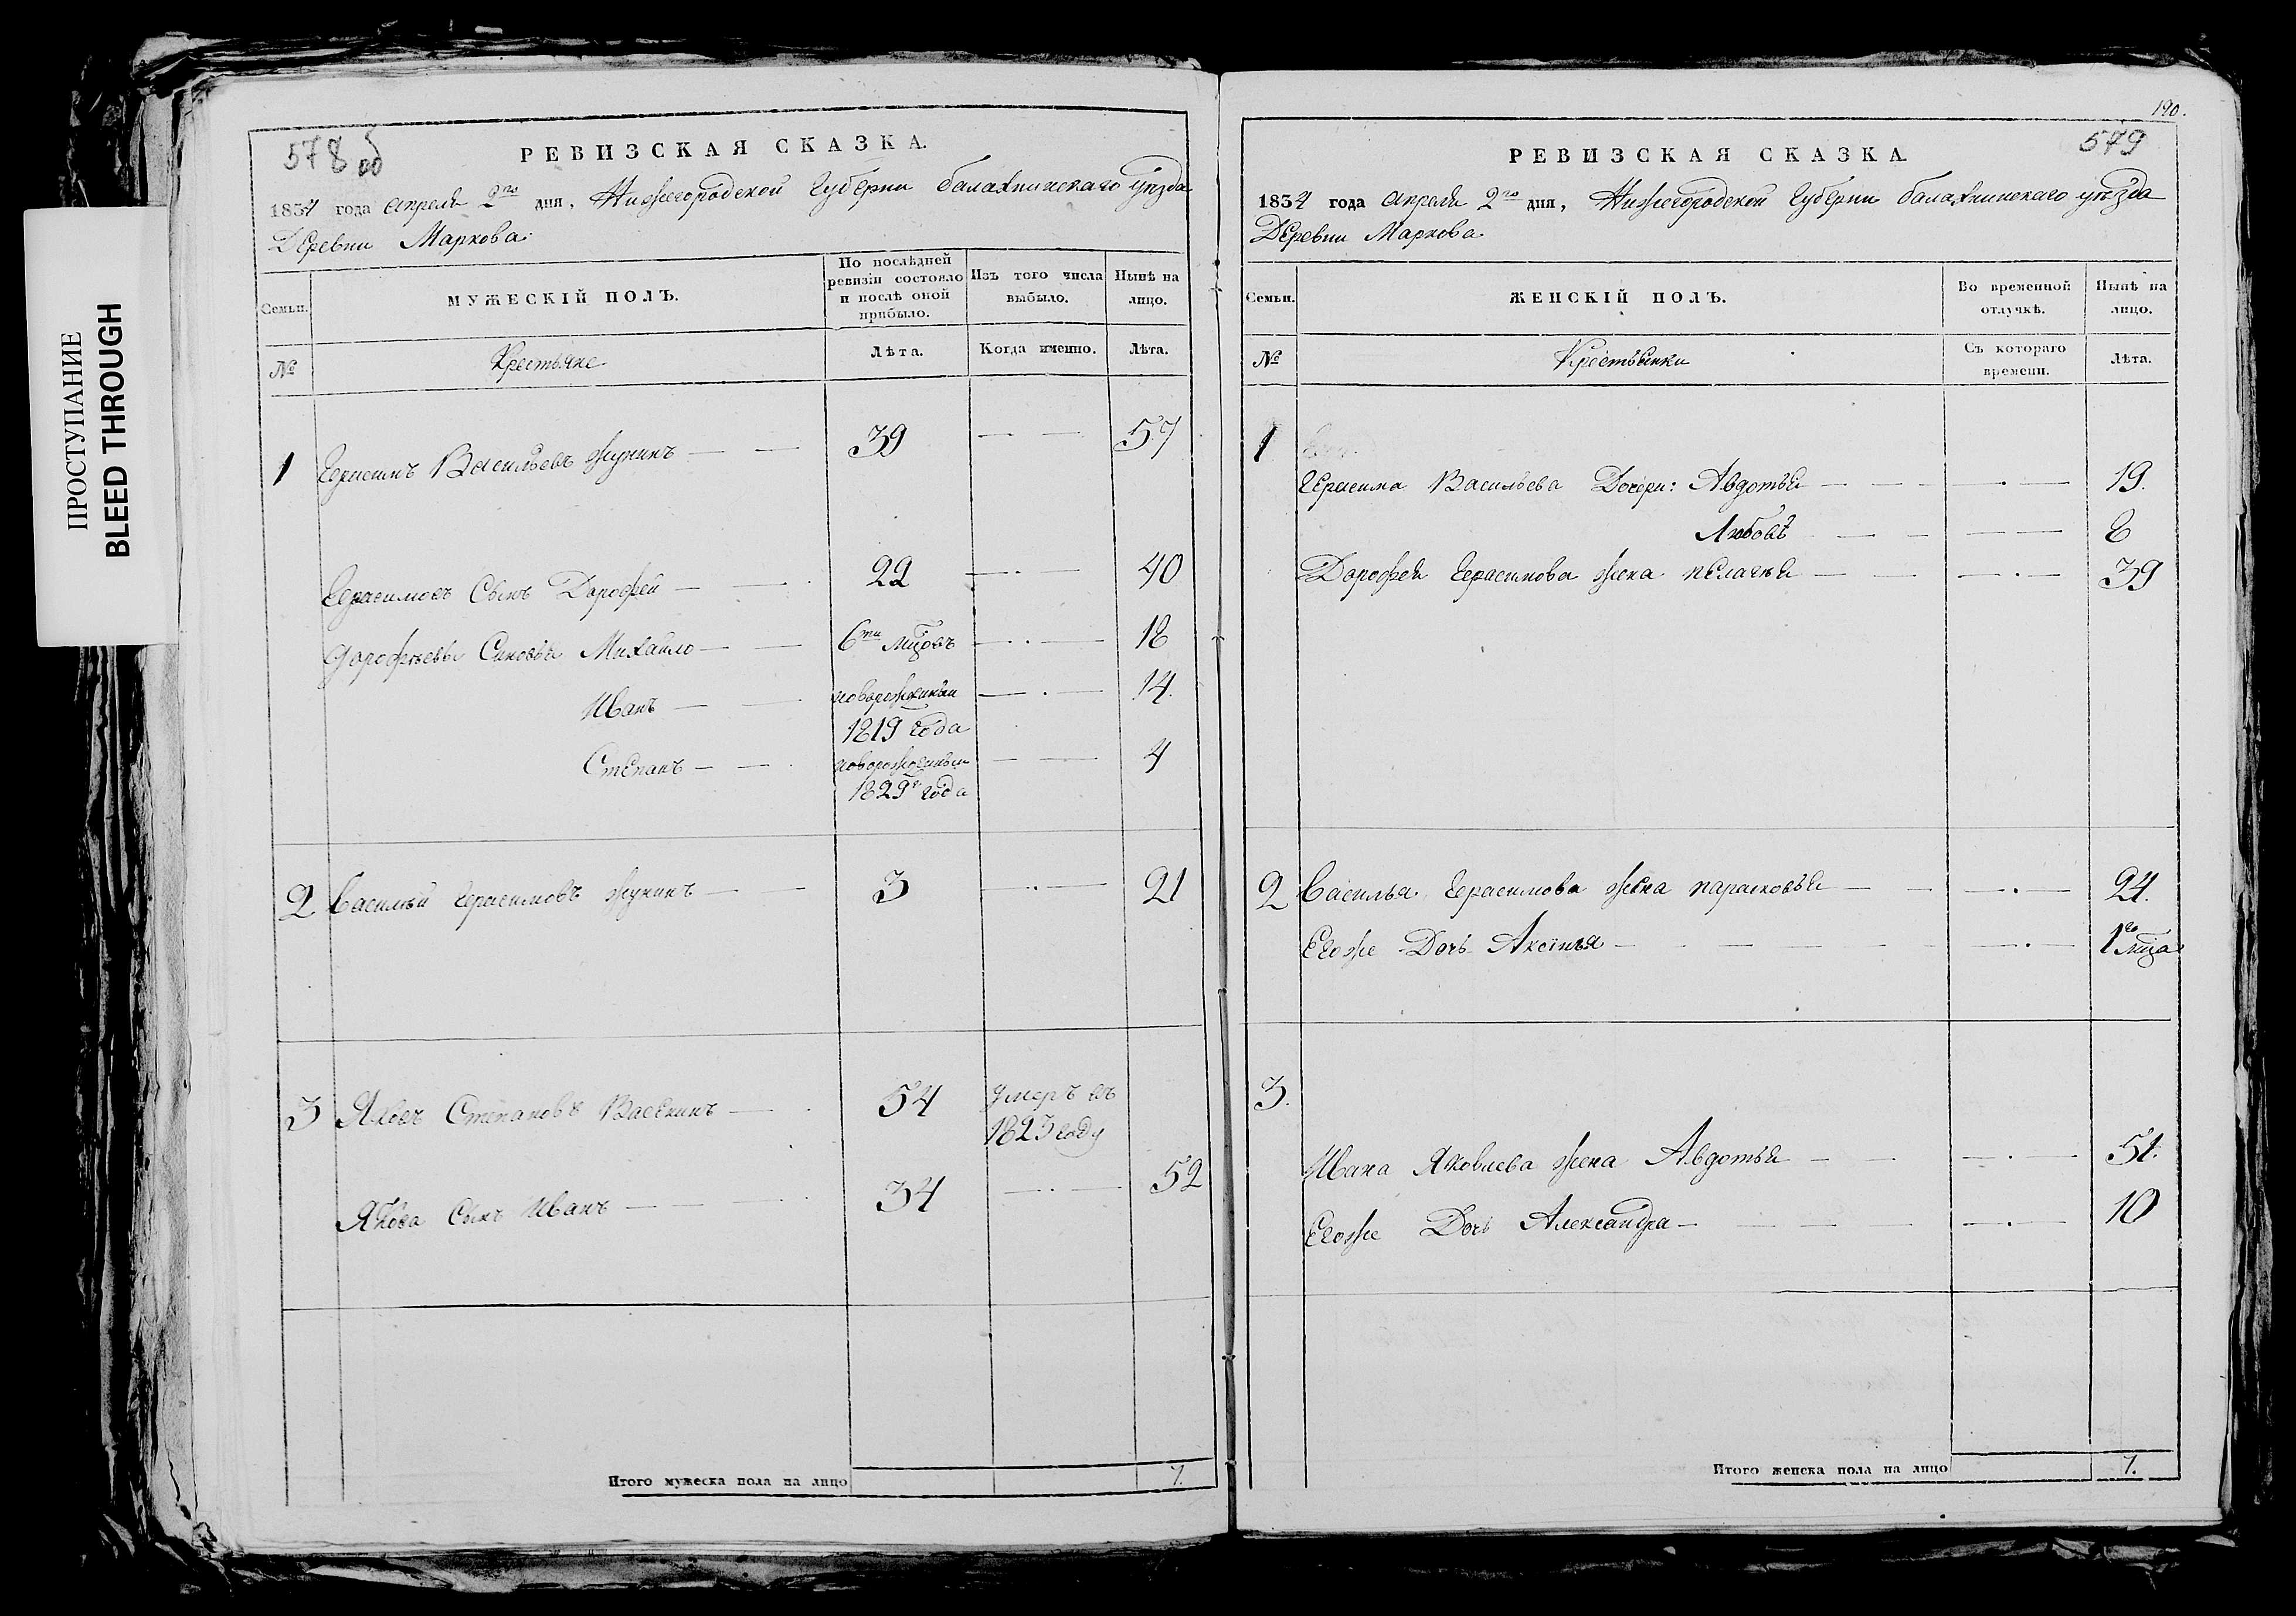 ПРОСТУПАНИЕ
BLEED THROUGH
578 об
РЕВИЗСКАЯ СКАЗКА.
1834 года Апреля 2го дня, Нижегородской Губернии балахнинскаго уѣзда
Деревни Маркова:
Семьи.
МУЖЕСКІЙ ПОЛЪ.
По послѣдней ревизіи состояло и послѣ оной прибыло.
Изъ того числа выбыло.
Нынѣ на лицо.
№
Крестьяне
Лѣта.
Когда именно.
Лѣта.
1 Герасимъ Васильевъ Жунинъ — — 39 — — 57
Герасимовъ Сынъ Дорофей — — 22 — — 40
Дорофѣевы Сыновья Михайло — — 6ти мцовъ — — 18
Иванъ — — новорожденныи — — 14.
1819 года
Степанъ — — новорожденныи — — 4
1829г года
2 Василий Герасимовъ Жунинъ — — 3 — — 21
3 Яковъ Степановъ Васенинъ — 54 умеръ въ
1823 году
Якова Сынъ Иванъ — — 34 — — 52
Итого мужеска пола на лицо 7.
190.
579
РЕВИЗСКАЯ СКАЗКА.
1834 года Апреля 2го дня, Нижегородской Губернии балахнинскаго уѣзда
Деревни Маркова
Семьи.
ЖЕНСКІЙ ПОЛЪ.
Во временной отлучкѣ.
Нынѣ на лицо.
№
Крестьянки
Съ котораго времени.
Лѣта.
1
Герасима Васильева Дочери: Авдотья — — — — 19.
Любовь — — — — 8
Дорофея Герасимова жена пелагѣя — — — — 39
2 Василья Герасимова жена парасковья — — — — 24.
Егоже Дочь Аксинья — — — — 1го мца
3.
Ивана Яковлева жена Авдотья — — — — 51.
Егоже Дочь Александра — — — — 10
Итого женска пола на лицо 7.